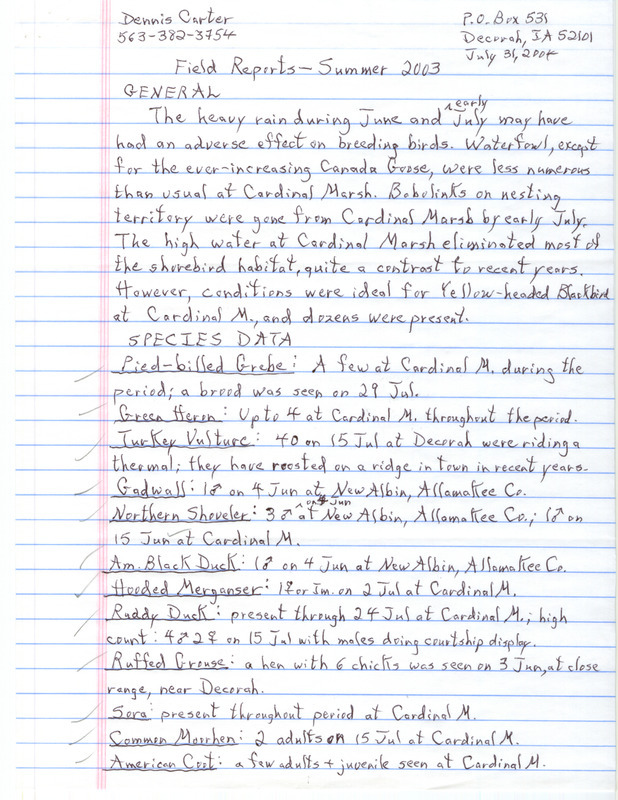 Dennis Carter
563-382-3754
P.O. Box 531
Decorah, IA 52101
July 31, 2004
Field Reports – Summer 2003
GENERAL
The heavy rain during June and early July may have
had an adverse effect on breeding birds. Waterfowl, except
for the ever-increasing Canada Goose, were less numerous
than usual at Cardinal Marsh. Bobolinks on nesting
territory were gone from Cardinal Marsh by early July.
The high water at Cardinal Marsh eliminated most of
the shorebird habitat, quite a contrast to recent years.
However, conditions were ideal for Yellow-headed Blackbird
at Cardinal M., and dozens were present.
SPECIES DATA
Pied-billed Grebe: A few at Cardinal M. during the
period; a brood was seen on 29 Jul.
Green Heron: Up to 4 at Cardinal M. throughout the period.
Turkey Vulture: 40 on 15 Jul at Decorah were riding a
thermal; they have roosted on a ridge in town in recent years.
Gadwall: 1♂ on 4 Jun at New Albin, Allamakee Co.
Northern Shoveler: 3♂ on 4 Jun at New Albin, Allamakee Co.; 1♂ on
15 Jun at Cardinal M.
Am. Black Duck: 1♂ on 4 Jun at New Albin, Allamakee Co.
Hooded Merganser: 1♀ or Im. on 2 Jul at Cardinal M.
Ruddy Duck: present through 24 Jul at Cardinal M.; high
count: 4♂ 2♀ on 15 Jul with males doing courtship display.
Ruffed Grouse: a hen with 6 chicks was seen on 3 Jun, at close
range, near Decorah.
Sora: present throughout period at Cardinal M.
Common Moorhen: 2 adults on 15 Jul at Cardinal M.
American Coot: a few adults + juvenile seen at Cardinal M.